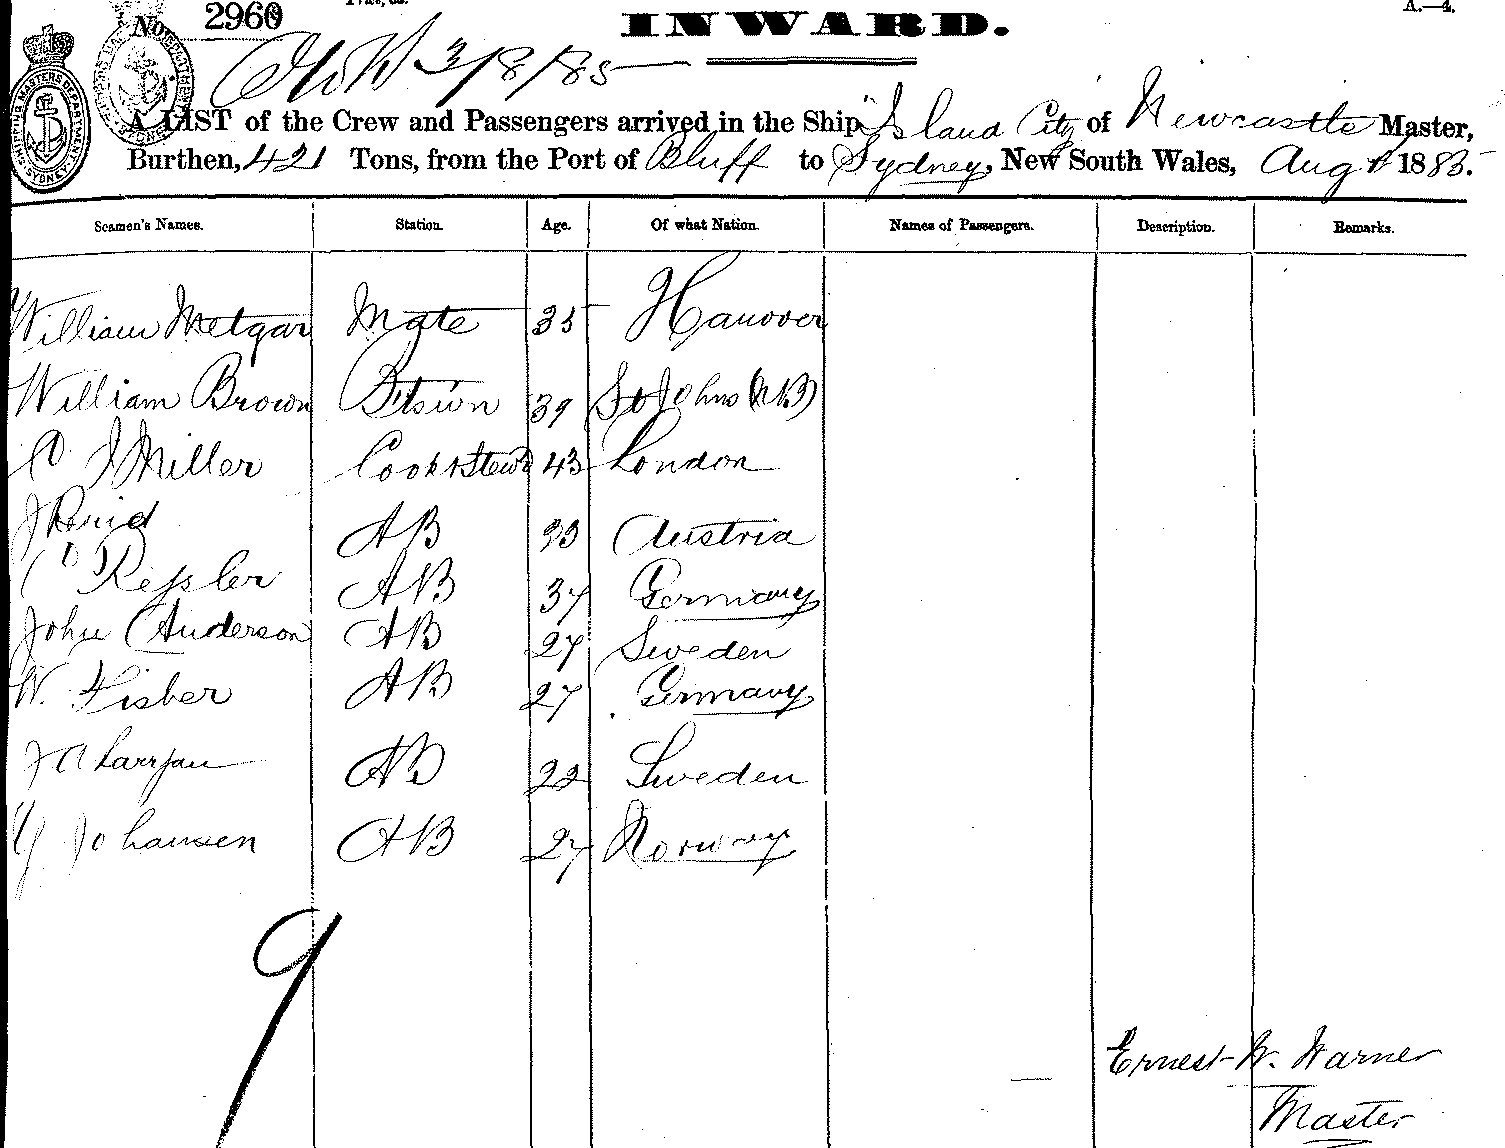 No. 2960
INWARD.
A.—4.
3/8/85
A LIST of the Crew and Passengers arrived in the Ship Island City of Newcastle Master,
Burthen, 421 Tons, from the Port of Bluff to Sydney, New South Wales, Aug 1885.
SHIPPING MASTERS DEPARTMENT SYDNEY
Seamen's Names. Station. Age. Of what Nation. Names of Passengers. Description. Remarks.
William Metgar Mate 35 Hanover
William Brown Btswn 39 St Johns (NB)
Miller Cook & Stewd 43 London
J AB 33 Austria
C Ressler AB 37 Germany
John Anderson AB 27 Sweden
W. Fisher AB 27 Germany
J A AB 22 Sweden
Johansen AB 27 Norway
9
Ernest W. Warner
Master